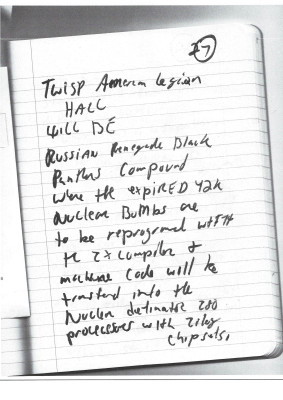 27
Twisp American Legion
HALL
will BE
Russian Renegade Black
Panthers Compound
were the expiRED Y2K
Nuclear Bombs are
to be reprogramed with
the ZX compiler &
machine code will be
transferd into the
Nuclear detinator Z80
processers with Zilog
chipsets.